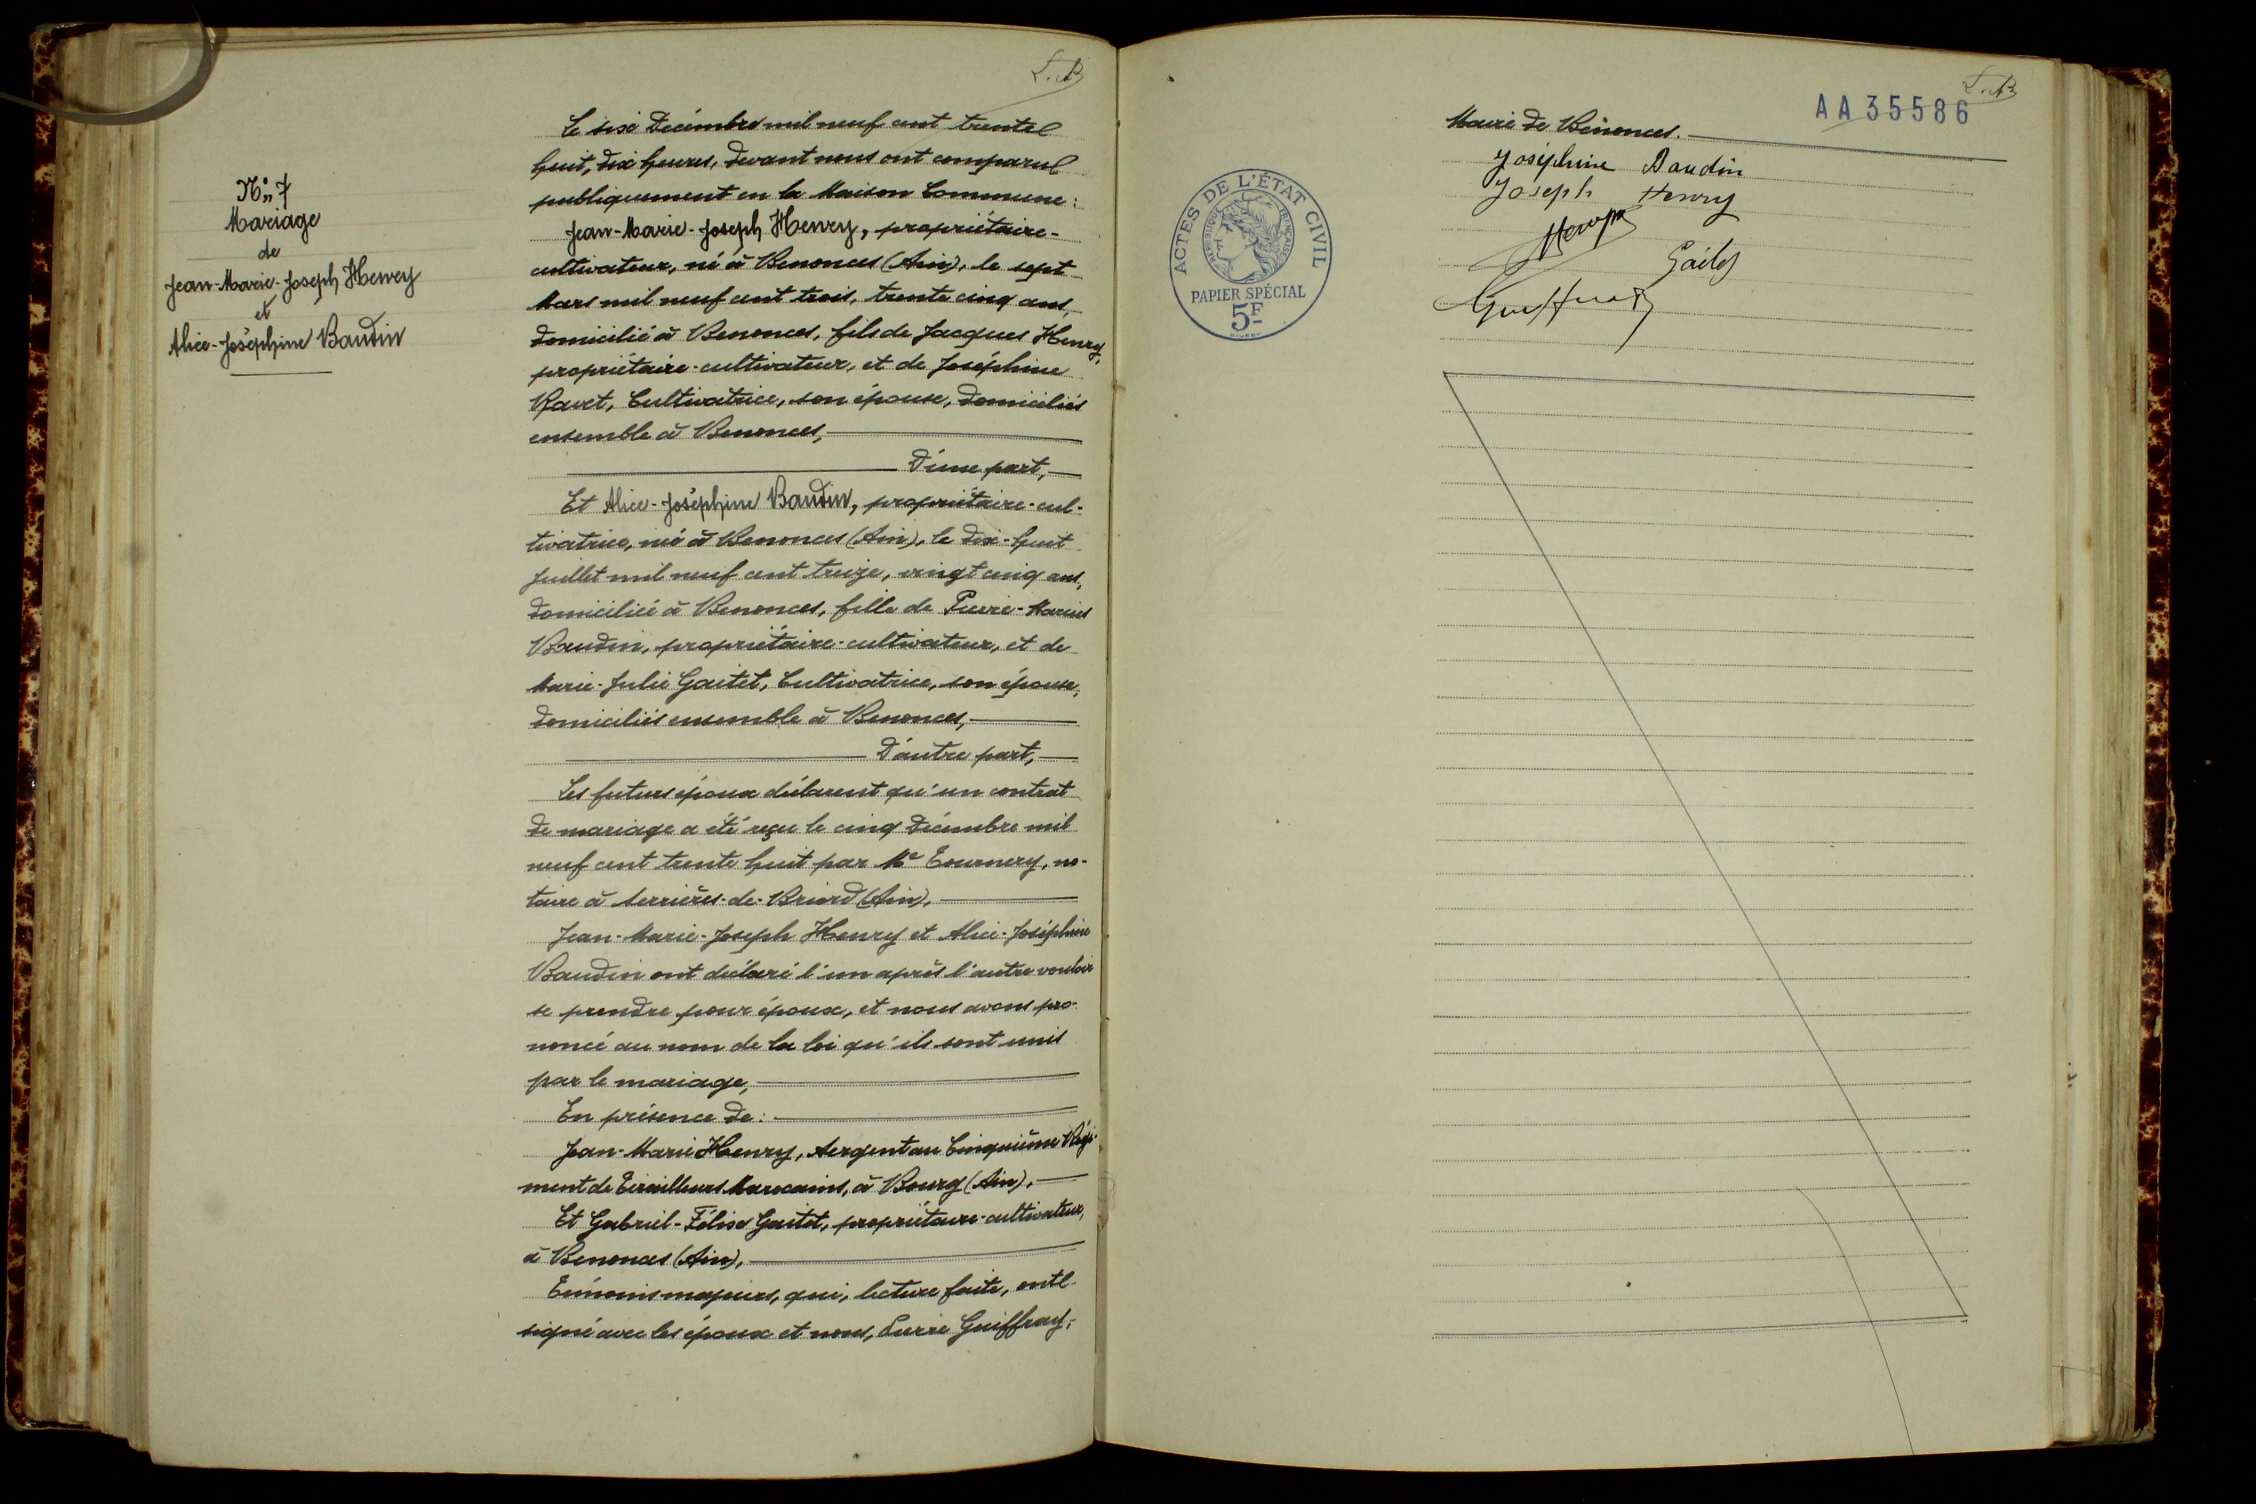 L. B
N° 7
Mariage
de
Jean-Marie-Joseph Henry
et
Alice-Joséphine Baudin
Le six Décembre mil neuf cent trente
huit, dix heures, devant nous ont comparu
publiquement en la Maison Commune :
Jean-Marie-Joseph Henry, propriétaire-
cultivateur, né à Benonces (Ain), le sept
Mars mil neuf cent trois, trente cinq ans,
domicilié à Benonces, fils de Jacques Henry,
propriétaire-cultivateur, et de Joséphine
Ravet, Cultivatrice, son épouse, domiciliés
ensemble à Benonces,
D'une part,
Et Alice-Joséphine Baudin, propriétaire-cul-
tivatrice, née à Benonces (Ain), le dix-huit
Juillet mil neuf cent treize, vingt cinq ans,
domiciliée à Benonces, fille de Pierre-Marius
Baudin, propriétaire-cultivateur, et de
Marie-Julie Gaitet, Cultivatrice, son épouse,
domiciliés ensemble à Benonces,
D'autre part,
Les futurs époux déclarent qu'un contrat
de mariage a été reçu le cinq Décembre mil
neuf cent trente huit par Me Tournery, no-
taire à Serrières-de-Briord (Ain),
Jean-Marie-Joseph Henry et Alice-Joséphine
Baudin ont déclaré l'un après l'autre vouloir
se prendre pour époux, et nous avons pro-
noncé au nom de la loi qu'ils sont unis
par le mariage,
En présence de :
Jean-Marie Henry, Sergent au Cinquième Régi-
ment de Tirailleurs Marocains, à Bourg (Ain),
Et Gabriel-Félix Gaitet, propriétaire-cultivateur,
à Benonces (Ain),
Témoins majeurs, qui, lecture faite, ont
signé avec les époux et nous, Guiffray,
L. B
AA 35586
Maire de Benonces.
Joséphine Baudin
Joseph Henry
Henry
ACTES DE L'ÉTAT CIVIL
RÉPUBLIQUE FRANÇAISE
PAPIER SPÉCIAL
5F
Guiffray